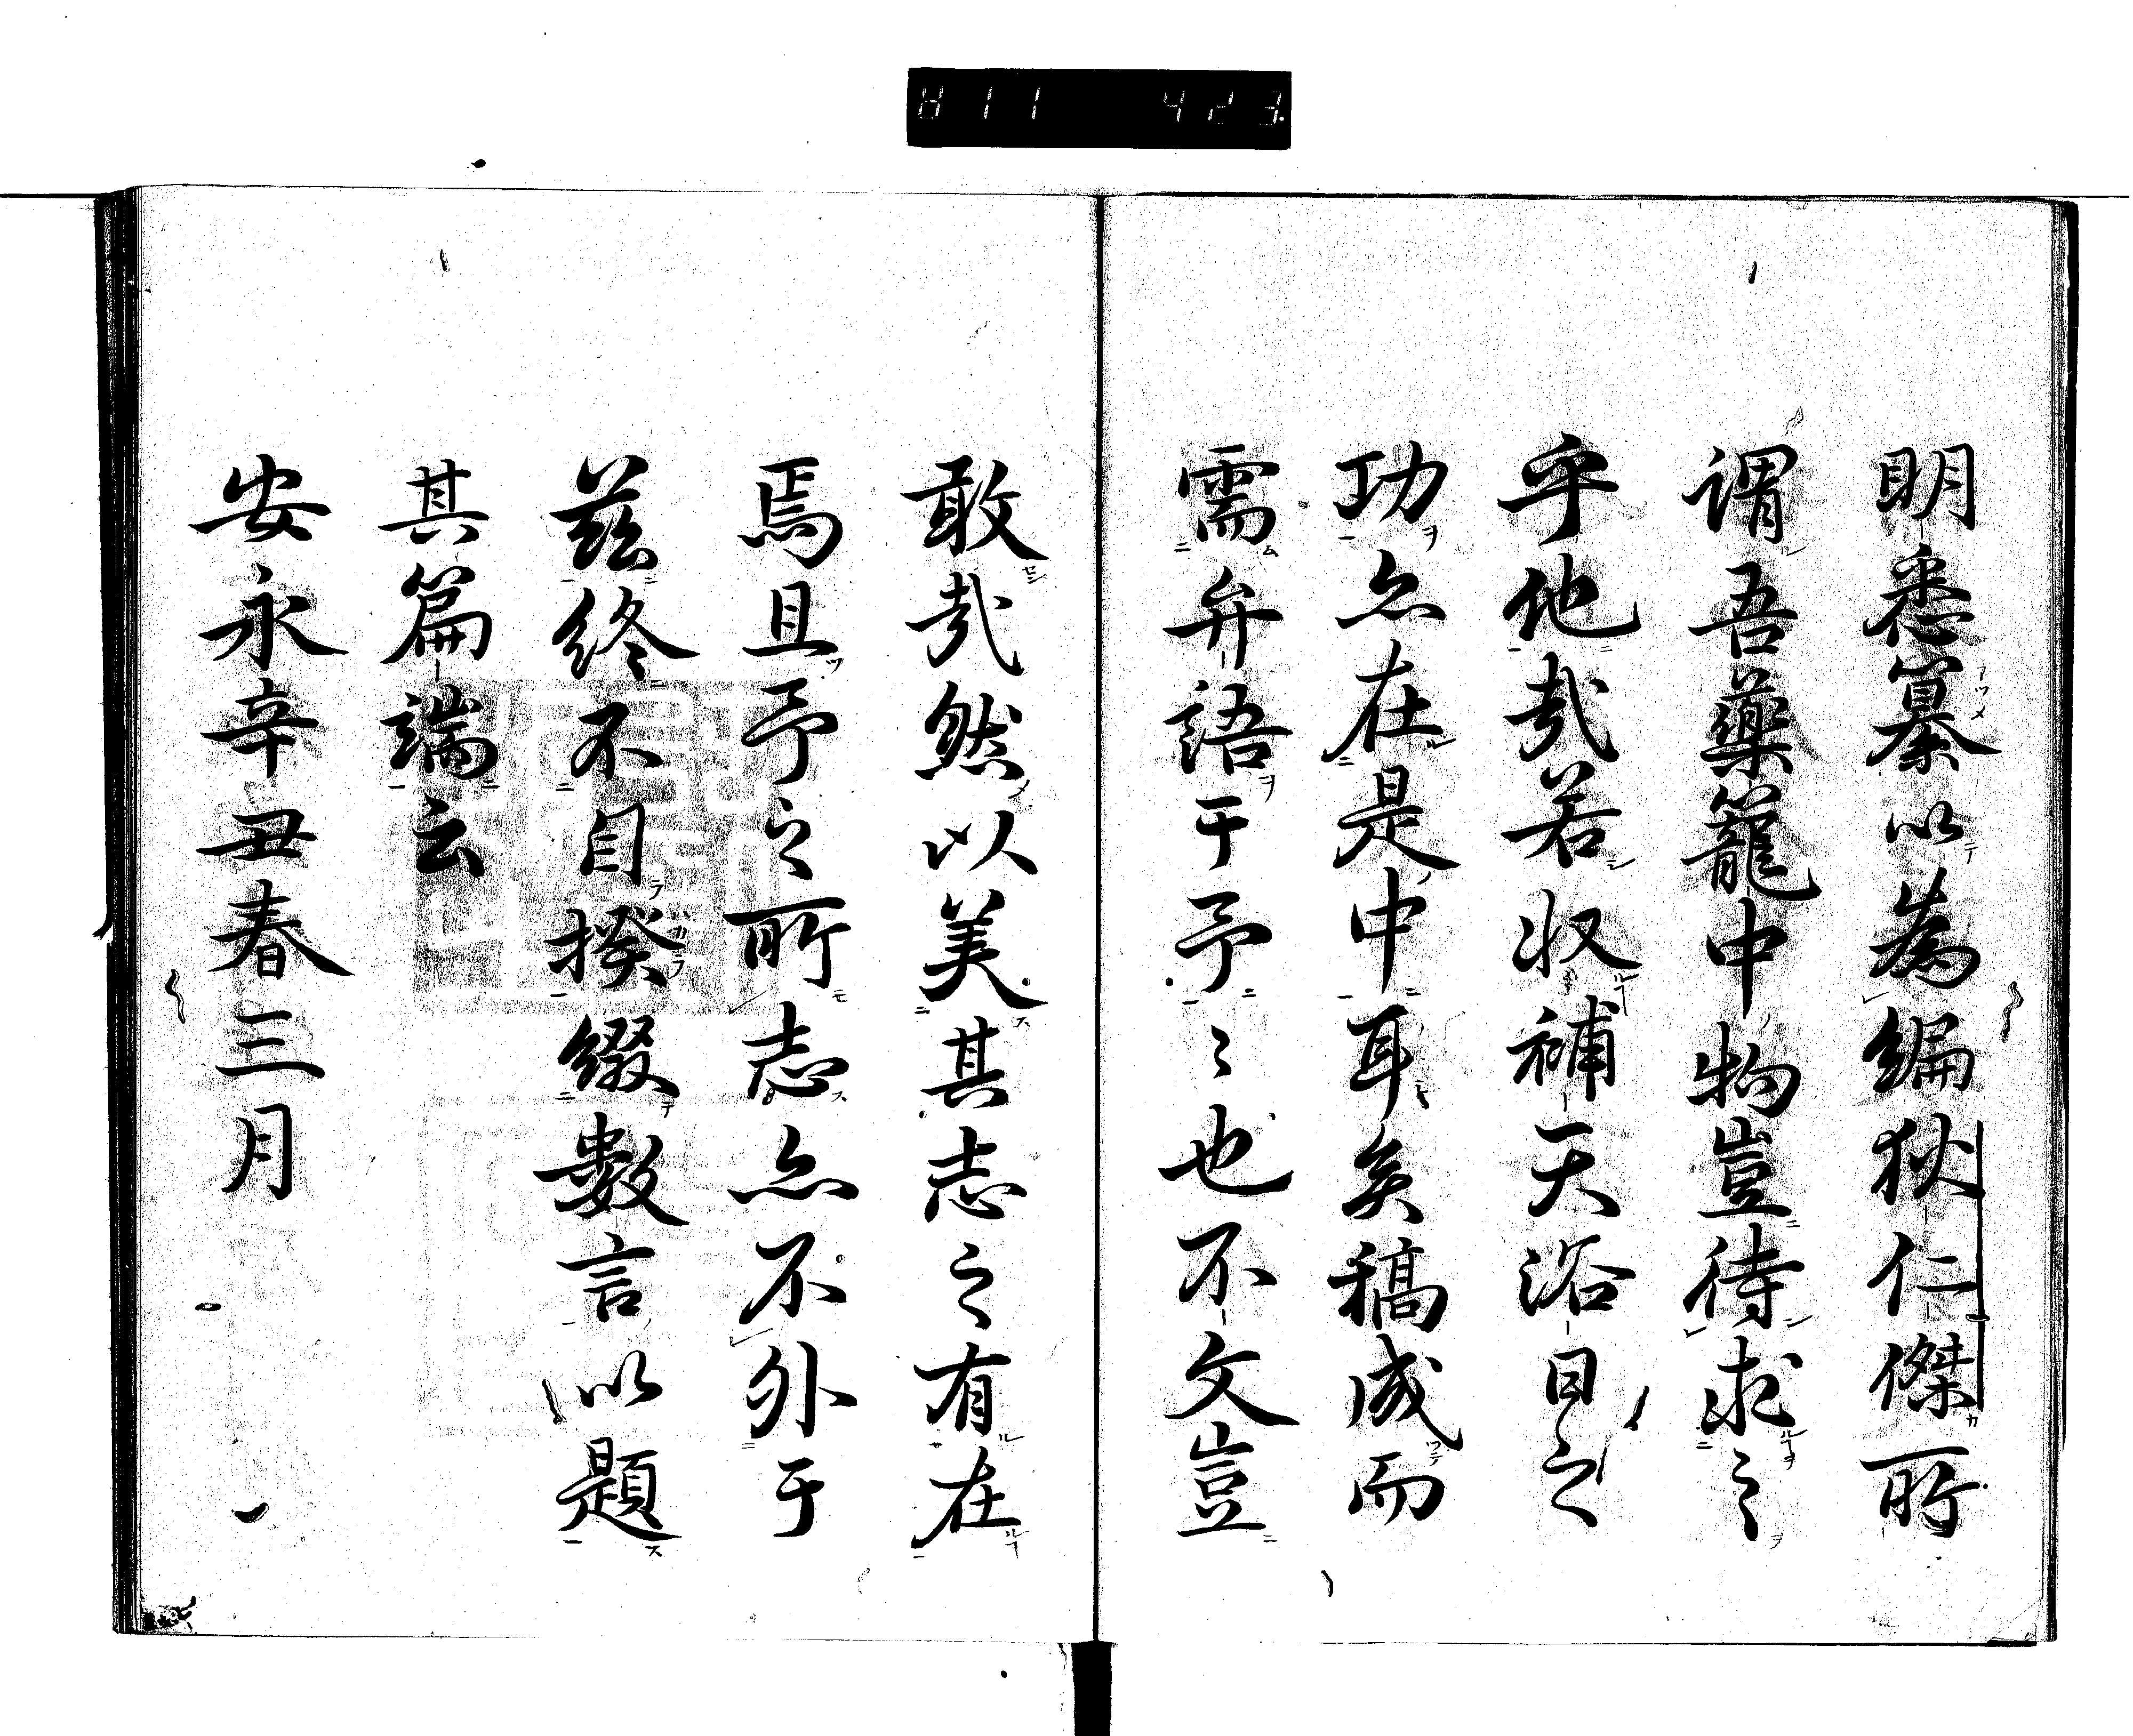 811 423
明悉纂以為編狄仁傑所
謂吾藥籠中物豈待求之
乎他哉若収補天浴日之
功亦在是中耳矣稿成而
需弁語于予〻也不文豈
敢哉然以美其志之有在
焉且予之所志亦不外于
茲終不自揆綴數言以題
其篇端云
安永辛丑春三月